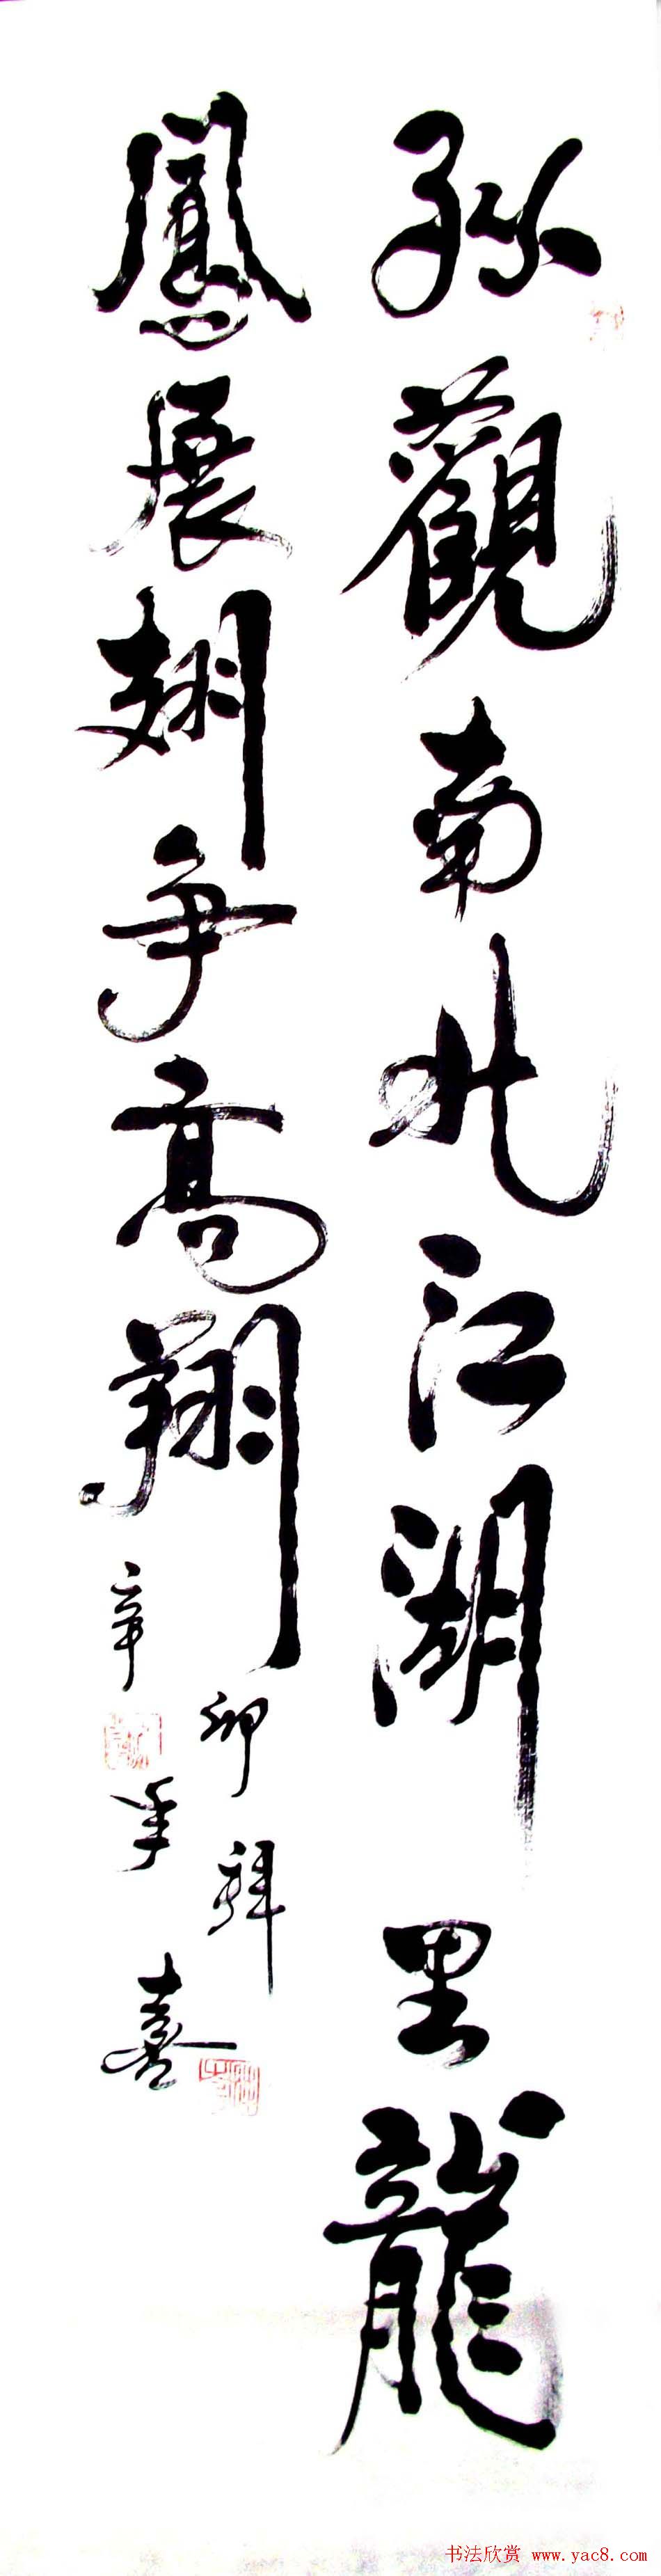 纵觀南北江湖里龍
鳳展翅争高翔
辛卯年祥喜
书法欣赏 www.yac8.com